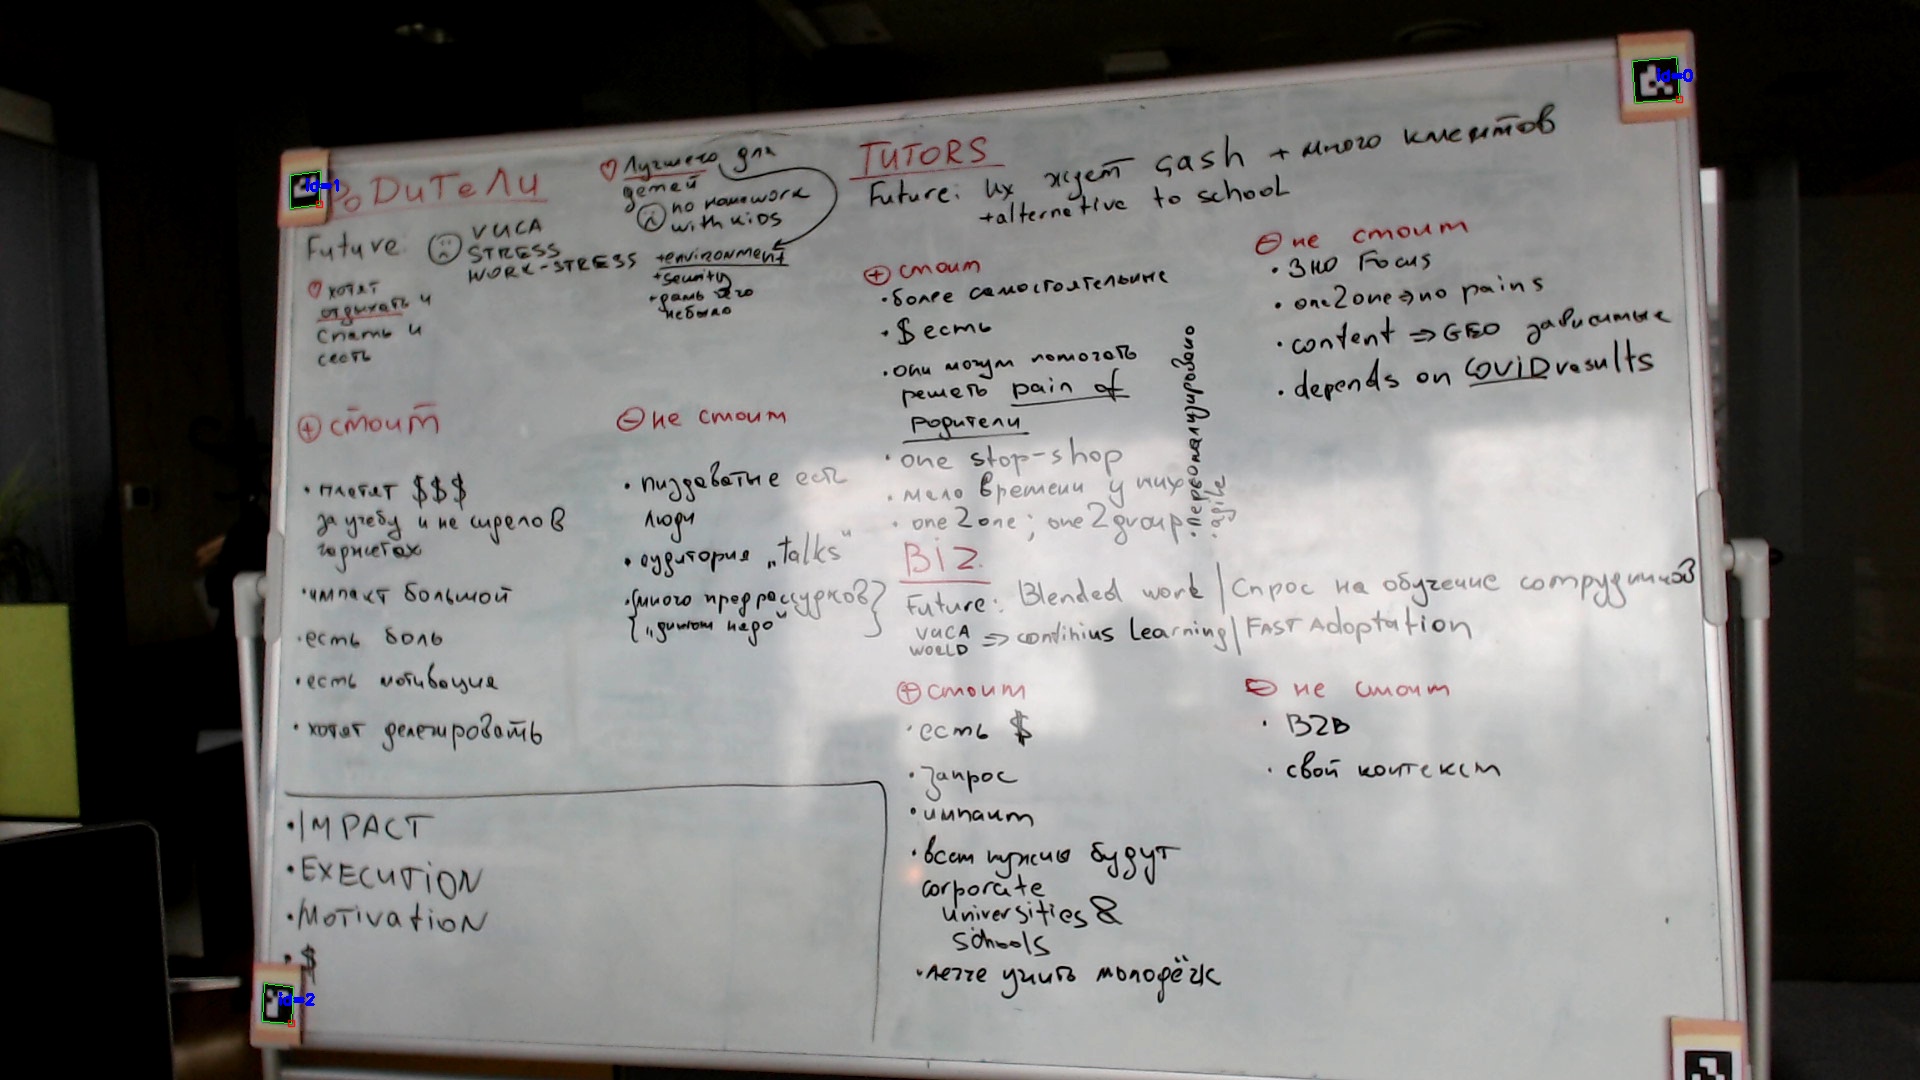 РОДИТЕЛИ
Future ☹ VUCA
STRESS
WORK-STRESS
♡ хотят
отдыхать и
спать и
сесть
♡ Лучшего для
детей
☹ no homework
with kids
+environment
+security
небыло
⊕ стоит
• платят $$$
за учебу и не
• импакт большой
• есть боль
• есть мотивация
• хотят делегировать
⊖ не стоит
• пиздаватые есть
люди
• аудитория „talks"
• {много предрассудков}
{„ надо"
• IMPACT
• EXECUTION
• MOTIVATION
• $
TUTORS
Future: их ждет cash + много клиентов
+alternative to school
⊕ стоит
• более самостоятельные
• $ есть
• они могут помогать
решать pain of
родители
• one stop-shop
• мало времени у них
• one2one; one2group
• персонализировано
• agile
⊖ не стоит
• ЗНО Focus
• one2one ⇒ no pains
• content ⇒ GEO зависимые
• depends on COVID results
Biz.
Future: Blended work | Спрос на обучение сотрудников
VUCA WORLD ⇒ continius Learning | FAST Adoptation
⊕ стоит
• есть $
• запрос
• импакт
• всем нужно будут
corporate
universities &
schools
• легче учить молодёж
⊖ не стоит
• B2B
• свой контекст
id=0
id=1
id=2